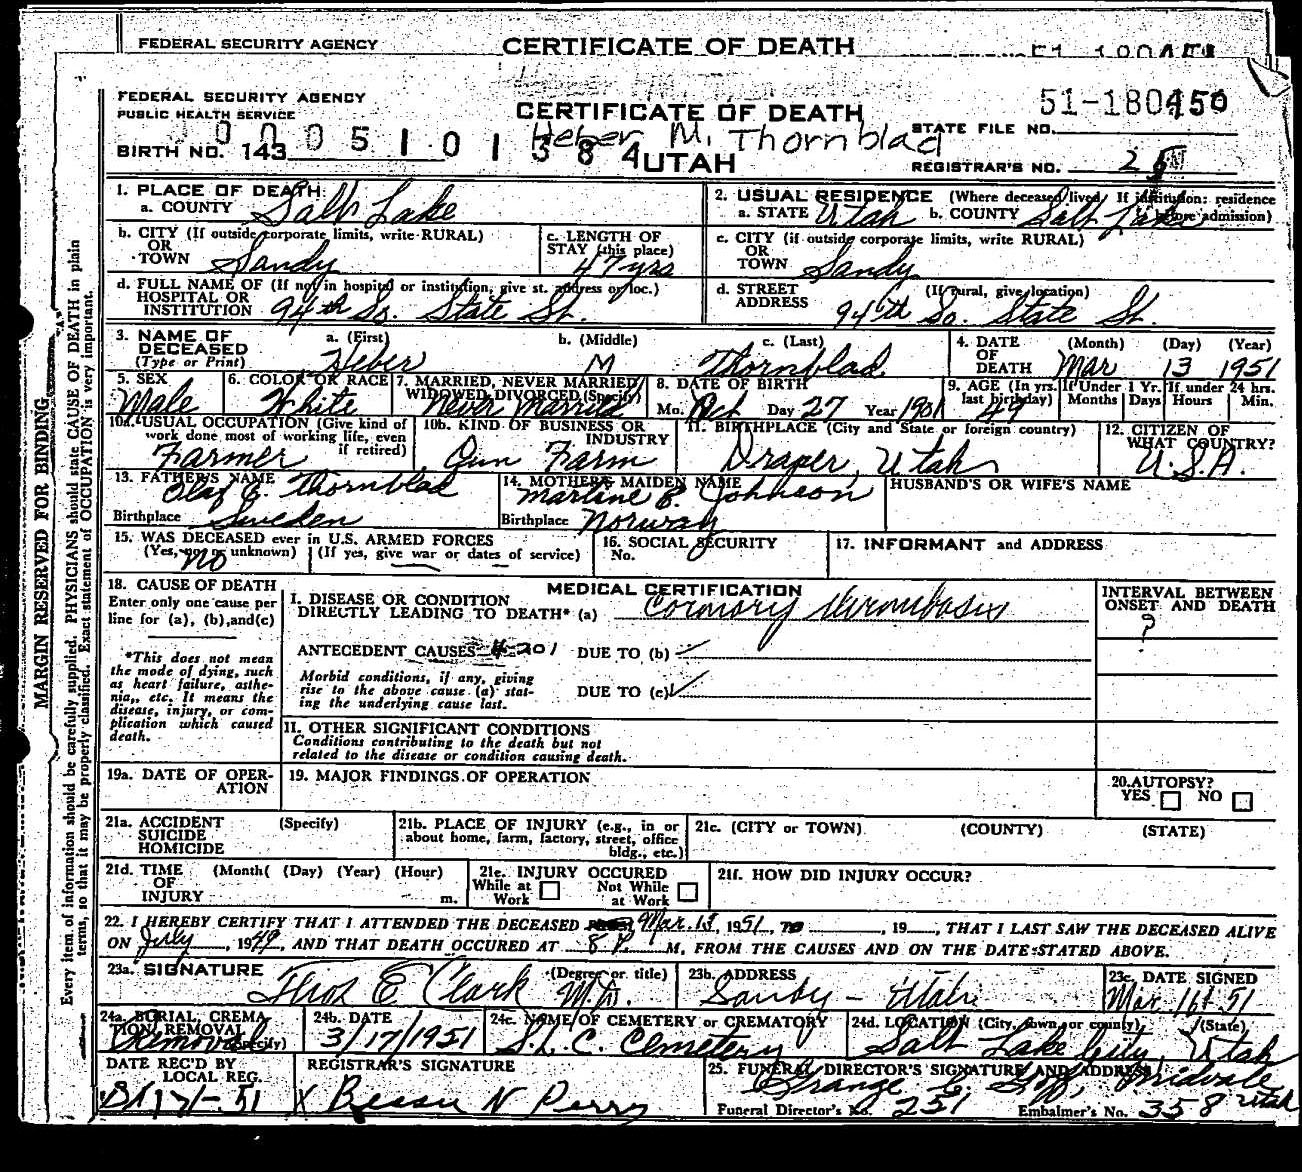 FEDERAL SECURITY AGENCY CERTIFICATE OF DEATH
FEDERAL SECURITY AGENCY
PUBLIC HEALTH SERVICE
CERTIFICATE OF DEATH
51-180450
Heber M. Thornblad
STATE FILE NO.
0005101384
BIRTH NO. 143
UTAH
REGISTRAR'S NO.
1. PLACE OF DEATH:
a. COUNTY Salt Lake
2. USUAL RESIDENCE (Where deceased lived. If institution: residence before admission)
a. STATE Utah b. COUNTY Salt Lake
b. CITY (If outside corporate limits, write RURAL)
OR
TOWN Sandy
c. LENGTH OF
STAY (this place)
47 yrs
c. CITY (if outside corporate limits, write RURAL)
OR
TOWN Sandy
d. FULL NAME OF (If not in hospital or institution, give st. address or loc.)
HOSPITAL OR
INSTITUTION 94th So. State St.
d. STREET (If rural, give location)
ADDRESS 94th So. State St.
3. NAME OF
DECEASED
(Type or Print)
a. (First) b. (Middle) c. (Last)
Heber M Thornblad
4. DATE
OF
DEATH
(Month) (Day) (Year)
Mar 13 1951
5. SEX
Male
6. COLOR OR RACE
White
7. MARRIED, NEVER MARRIED,
WIDOWED, DIVORCED (Specify)
Never Married
8. DATE OF BIRTH
Mo. Oct Day 27 Year 1901
9. AGE (In yrs.
last birthday)
49
If Under 1 Yr.
Months Days
If under 24 hrs.
Hours Min.
10a. USUAL OCCUPATION (Give kind of
work done most of working life, even
if retired)
Farmer
10b. KIND OF BUSINESS OR
INDUSTRY
Own Farm
11. BIRTHPLACE (City and State or foreign country)
Draper, Utah
12. CITIZEN OF
WHAT COUNTRY?
U.S.A.
13. FATHER'S NAME
Olaf E. Thornblad
Birthplace Sweden
14. MOTHER'S MAIDEN NAME
Martine E. Johnson
Birthplace Norway
HUSBAND'S OR WIFE'S NAME
15. WAS DECEASED ever in U.S. ARMED FORCES
(Yes, no or unknown) (If yes, give war or dates of service)
no
16. SOCIAL SECURITY
No.
17. INFORMANT and ADDRESS
18. CAUSE OF DEATH
Enter only one cause per
line for (a), (b), and (c)
*This does not mean
the mode of dying, such
as heart failure, asthe-
nia, etc. It means the
disease, injury, or com-
plication which caused
death.
MEDICAL CERTIFICATION
I. DISEASE OR CONDITION
DIRECTLY LEADING TO DEATH* (a) Coronary thrombosis
ANTECEDENT CAUSES 4201 DUE TO (b)
Morbid conditions, if any, giving
rise to the above cause (a) stat-
ing the underlying cause last.
DUE TO (c)
INTERVAL BETWEEN
ONSET AND DEATH
?
II. OTHER SIGNIFICANT CONDITIONS
Conditions contributing to the death but not
related to the disease or condition causing death.
19a. DATE OF OPER-
ATION
19. MAJOR FINDINGS OF OPERATION
20. AUTOPSY?
YES NO
21a. ACCIDENT (Specify)
SUICIDE
HOMICIDE
21b. PLACE OF INJURY (e.g., in or
about home, farm, factory, street, office
bldg., etc.)
21c. (CITY or TOWN) (COUNTY) (STATE)
21d. TIME (Month( (Day) (Year) (Hour)
OF
INJURY m.
21e. INJURY OCCURED
While at Work Not While at Work
21f. HOW DID INJURY OCCUR?
22. I HEREBY CERTIFY THAT I ATTENDED THE DECEASED Mar. 13, 1951 TO , 19 , THAT I LAST SAW THE DECEASED ALIVE
ON July , 1949, AND THAT DEATH OCCURED AT 8 P. M, FROM THE CAUSES AND ON THE DATE STATED ABOVE.
23a. SIGNATURE (Degree or title)
Thos E Clark M.D.
23b. ADDRESS
Sandy - Utah
23c. DATE SIGNED
Mar. 16 - 51
24a. BURIAL, CREMA-
TION, REMOVAL
(Specify)
Removal
24b. DATE
3/17/1951
24c. NAME OF CEMETERY or CREMATORY
S.L.C. Cemetery
24d. LOCATION (City, town, or county) (State)
Salt Lake City, Utah
DATE REC'D BY
LOCAL REG.
REGISTRAR'S SIGNATURE
X Bessie N Perry
25. FUNERAL DIRECTOR'S SIGNATURE AND ADDRESS
Goff, Midvale Utah
Funeral Director's No. 251 Embalmer's No. 358
MARGIN RESERVED FOR BINDING
Every item of information should be carefully supplied. PHYSICIANS should state CAUSE OF DEATH in plain
terms, so that it may be properly classified. Exact statement of OCCUPATION is very important.